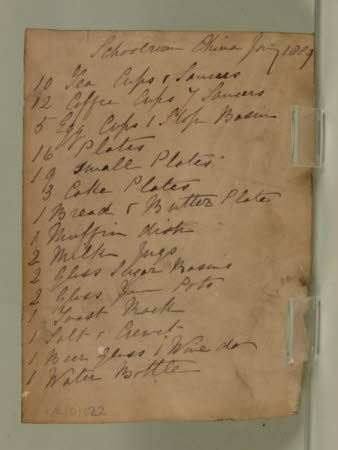 Schoolroom China Jany 1889
10 Tea Cups & Saucers
12 Coffee Cups 7 Saucers
5 Egg Cups 1 Slop Basin
16 Plates
19 Small Plates
3 Cake Plates
1 Bread & Butter Plate
1 Muffin dish
2 Milk Jugs
2 Glass Sugar Basins
2 Glass Jam Pots
1 Toast Rack
1 Salt & Cruet
1 Beer glass 1 Wine do
1 Water Bottle
022